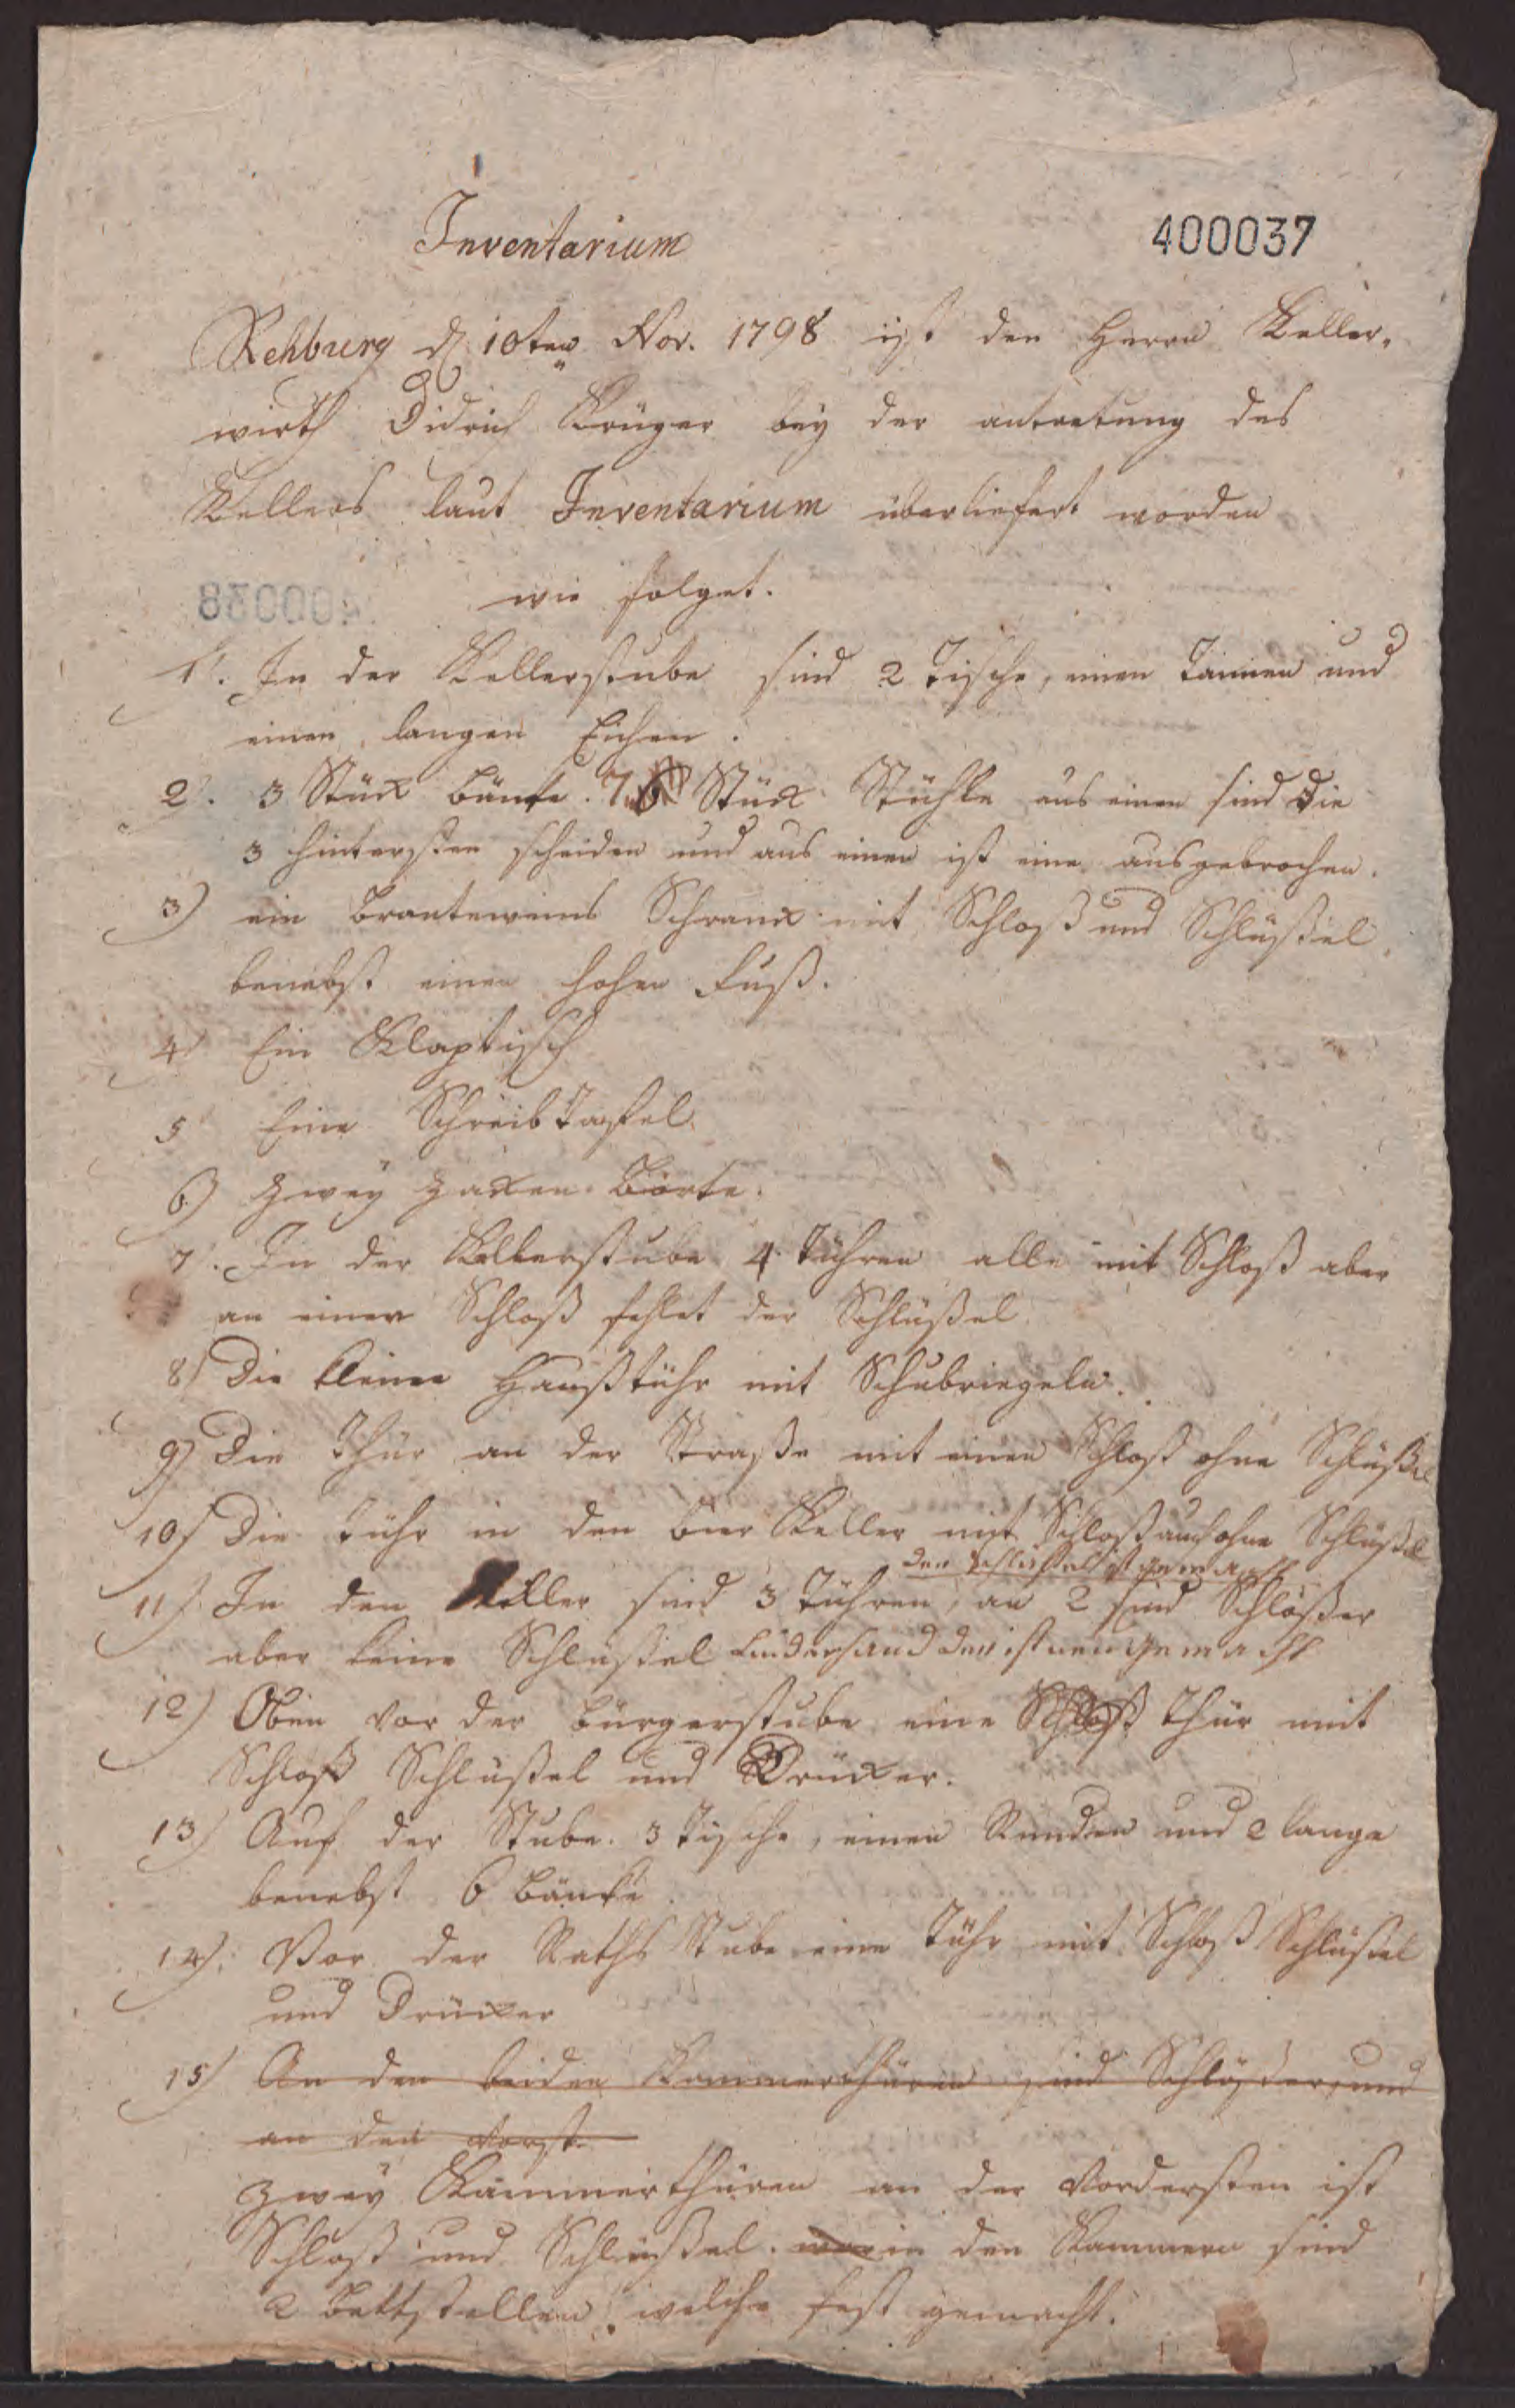 Inventarium
400037
Rehburg d 10ten Nov. 1798 ist den Herrn Keller-
wirth Didrich Krüger bey der antretung des
Kellers laut Inventarium überliefert worden
wie folget.
1. In der Kellerstube sind 2 Tische, einen Tannen und
einen langen Eichen.
2. 3 Stück bänke. 7 Stück Stühle aus einen sind die
3 hintersten scheiden und aus einen ist eine ausgebrochen.
3) ein branteweins Schrank mit Schloß und Schlüßel
benebst einen hohen Fuß.
4 Ein Klaptisch
5 Eine Schreib Tafel
6) Zwey Zacken börte.
7. In der Kellerstube 4 Tühren alle mit Schloß aber
an einen Schloß fehlet der Schlüßel
8) Die kleine Haußtühr mit Schubriegeln.
9) Die Thür an der Straße mit einen Schloß ohne Schlüßel
10) Die Tühr in den bier Keller mit Schloß auch ohne Schlüßel
der Schlüßel ist gemacht
11) In den Keller sind 3 Tühren, an 2 sind Schlößer
aber keine Schlüßel ist neu gemacht
12) Oben vor der bürgerstube eine Schloß Thür mit
Schloß Schlüßel und Drücker.
13) Auf der Stube. 3 Tische, einen Runden und 2 lange
benebst 6 bänke
14). Vor der Raths Stube eine Tühr mit Schloß Schlüßel
und Drücker
15) An den beiden Kammerthüren sind Schlößer, und
an den vorst
Zwey Kammerthüren an der Vordersten ist
Schloß und Schlüßel. in den Kammern sind
2 bettstellen, welche fest gemacht.